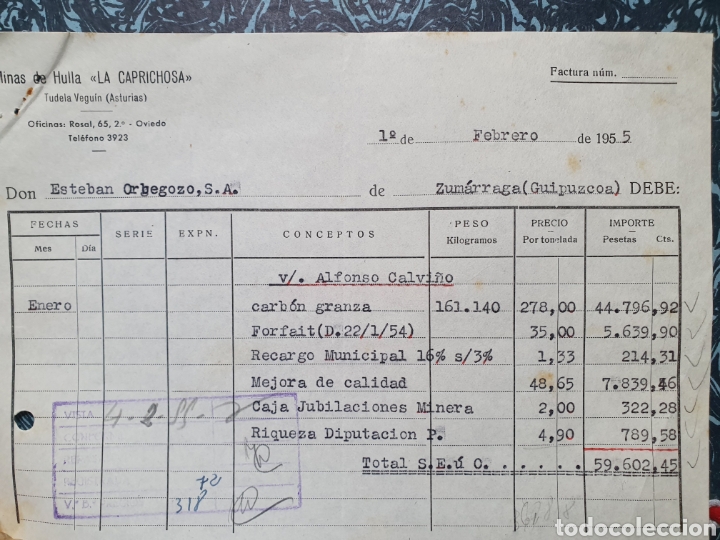 Minas de Hulla «LA CAPRICHOSA»
Tudela Veguín (Asturias)
Oficinas: Rosal, 65, 2.º - Oviedo
Teléfono 3923
Factura núm.
1º de Febrero de 1955
Don Esteban Orbegozo, S.A. de Zumárraga (Guipuzcoa) DEBE:
FECHAS SERIE EXPN. CONCEPTOS PESO Kilogramos PRECIO Por tonelada IMPORTE
Mes Día Pesetas Cts.
v/. Alfonso Calviño
Enero carbón granza 161.140 278,00 44.796,92
Forfait (D.22/1/54) 35,00 5.639,90
Recargo Municipal 16% s/3% 1,33 214,31
Mejora de calidad 48,65 7.839,46
Caja Jubilaciones Minera 2,00 322,28
Riqueza Diputacion P. 4,90 789,58
Total S.E.ú O. . . . . . 59.602,45
VISTA 4-2-55-
V.º B.º
72
318
todocoleccion